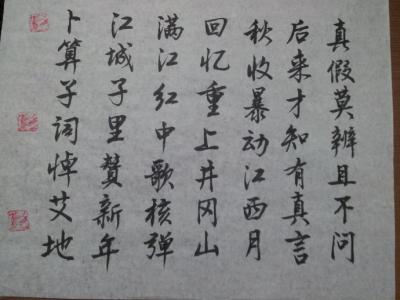 真假莫辨且不问
后来才知有真言
秋收暴动江西月
回忆重上井冈山
满江红中歌核弹
江城子里赞新年
卜算子词悼艾地